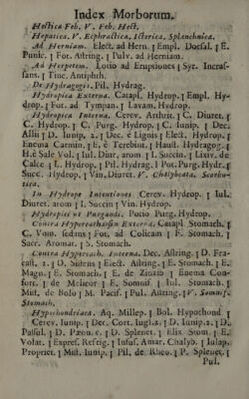 Index Morborum.
Hectica Feb. V. Feb. Hect.
Hepatica. V. Ecphractica, Icterica, Splenchnica.
Ad Herniam. Elect. ad Hern. ⁅ Empl. Doessl. ⁅ E.
Punic. ⁅ Fot. Astring. ⁅ Pulv. ad Herniam.
Ad Herpetem. Lotio ad Eruptiones ⁅ Syr. Incras-
sans. ⁅ Tinc. Antiphth.
De Hydragogis. Pil. Hydrag.
Hydropica Externa. Catapl. Hydrop. ⁅ Empl. Hy-
drop. ⁅ Fot. ad Tympan. ⁅ Lavam. Hydrop.
Hydropica Interna. Cerev. Arthrit. ⁅ C. Diuret. ⁅
C. Hydrop. ⁅ C. Purg. Hydrop. ⁅ C. Junip. ⁅ Dec.
Allii ⁅ D. Junip. ⁅ Dec. è Lignis ⁅ Elect. Hydrop. ⁅
Enema Carmin. ⁅ E. è Terebint. ⁅ Haust. Hydragog. ⁅
H. è Sale Vol. ⁅ Jul. Diur. arom ⁅ J. Succin. ⁅ Lixiv. de
Calce ⁅ L. Hydrop. ⁅ Pil. Hydrag. ⁅ Pot. Purg. Hydr. ⁅
Succ. Hydrop. ⁅ Vin. Diuret. V. Chalybeata, Scorbu-
tica.
In Hydrope Intentiones Cerev. Hydrop. ⁅ Jul.
Diuret. arom ⁅ J. Succin ⁅ Vin. Hydrop.
Hydropici ut Purgandi. Potio Purg. Hydrop.
Contra Hypercatharsin Externa. Catapl. Stomach. ⁅
C. Vom. sedans ⁅ Fot. ad Colicam ⁅ F. Stomach. ⁅
Sacc. Aromat. ⁅ S. Stomach.
Contra Hypercath. Interna. Dec. Astring. ⁅ D. Fra-
cast. ⁅ D. Sistens ⁅ Elect. Astring. ⁅ E. Stomach. ⁅ E.
Magn. ⁅ E. Stomach. ⁅ E. de Zinzib ⁅ Enema Con-
fort. ⁅ de Melicer ⁅ E. Somnif. ⁅ Jul. Stomach. ⁅
Mist. de Bolo ⁅ M. Pacif. ⁅ Pul. Astring. ⁅ V. Somnif.
Stomach.
Hypochondriaca. Aq. Millep. ⁅ Bol. Hypochond ⁅
Cerev. Junip. ⁅ Dec. Cort. Jugl. 2. ⁅ D. Junip. 2. ⁅ D.
Passul. ⁅ D. Pæon. c. ⁅ D. Splenet. ⁅ Elix Stom. ⁅ E.
Volat. ⁅ Expres. Refrig. ⁅ Infus. Amar. Chalyb. ⁅ Julap.
Propriet. ⁅ Mist. Junip. ⁅ Pil. de Rheo. ⁅ P. Splenet. ⁅
Pul.